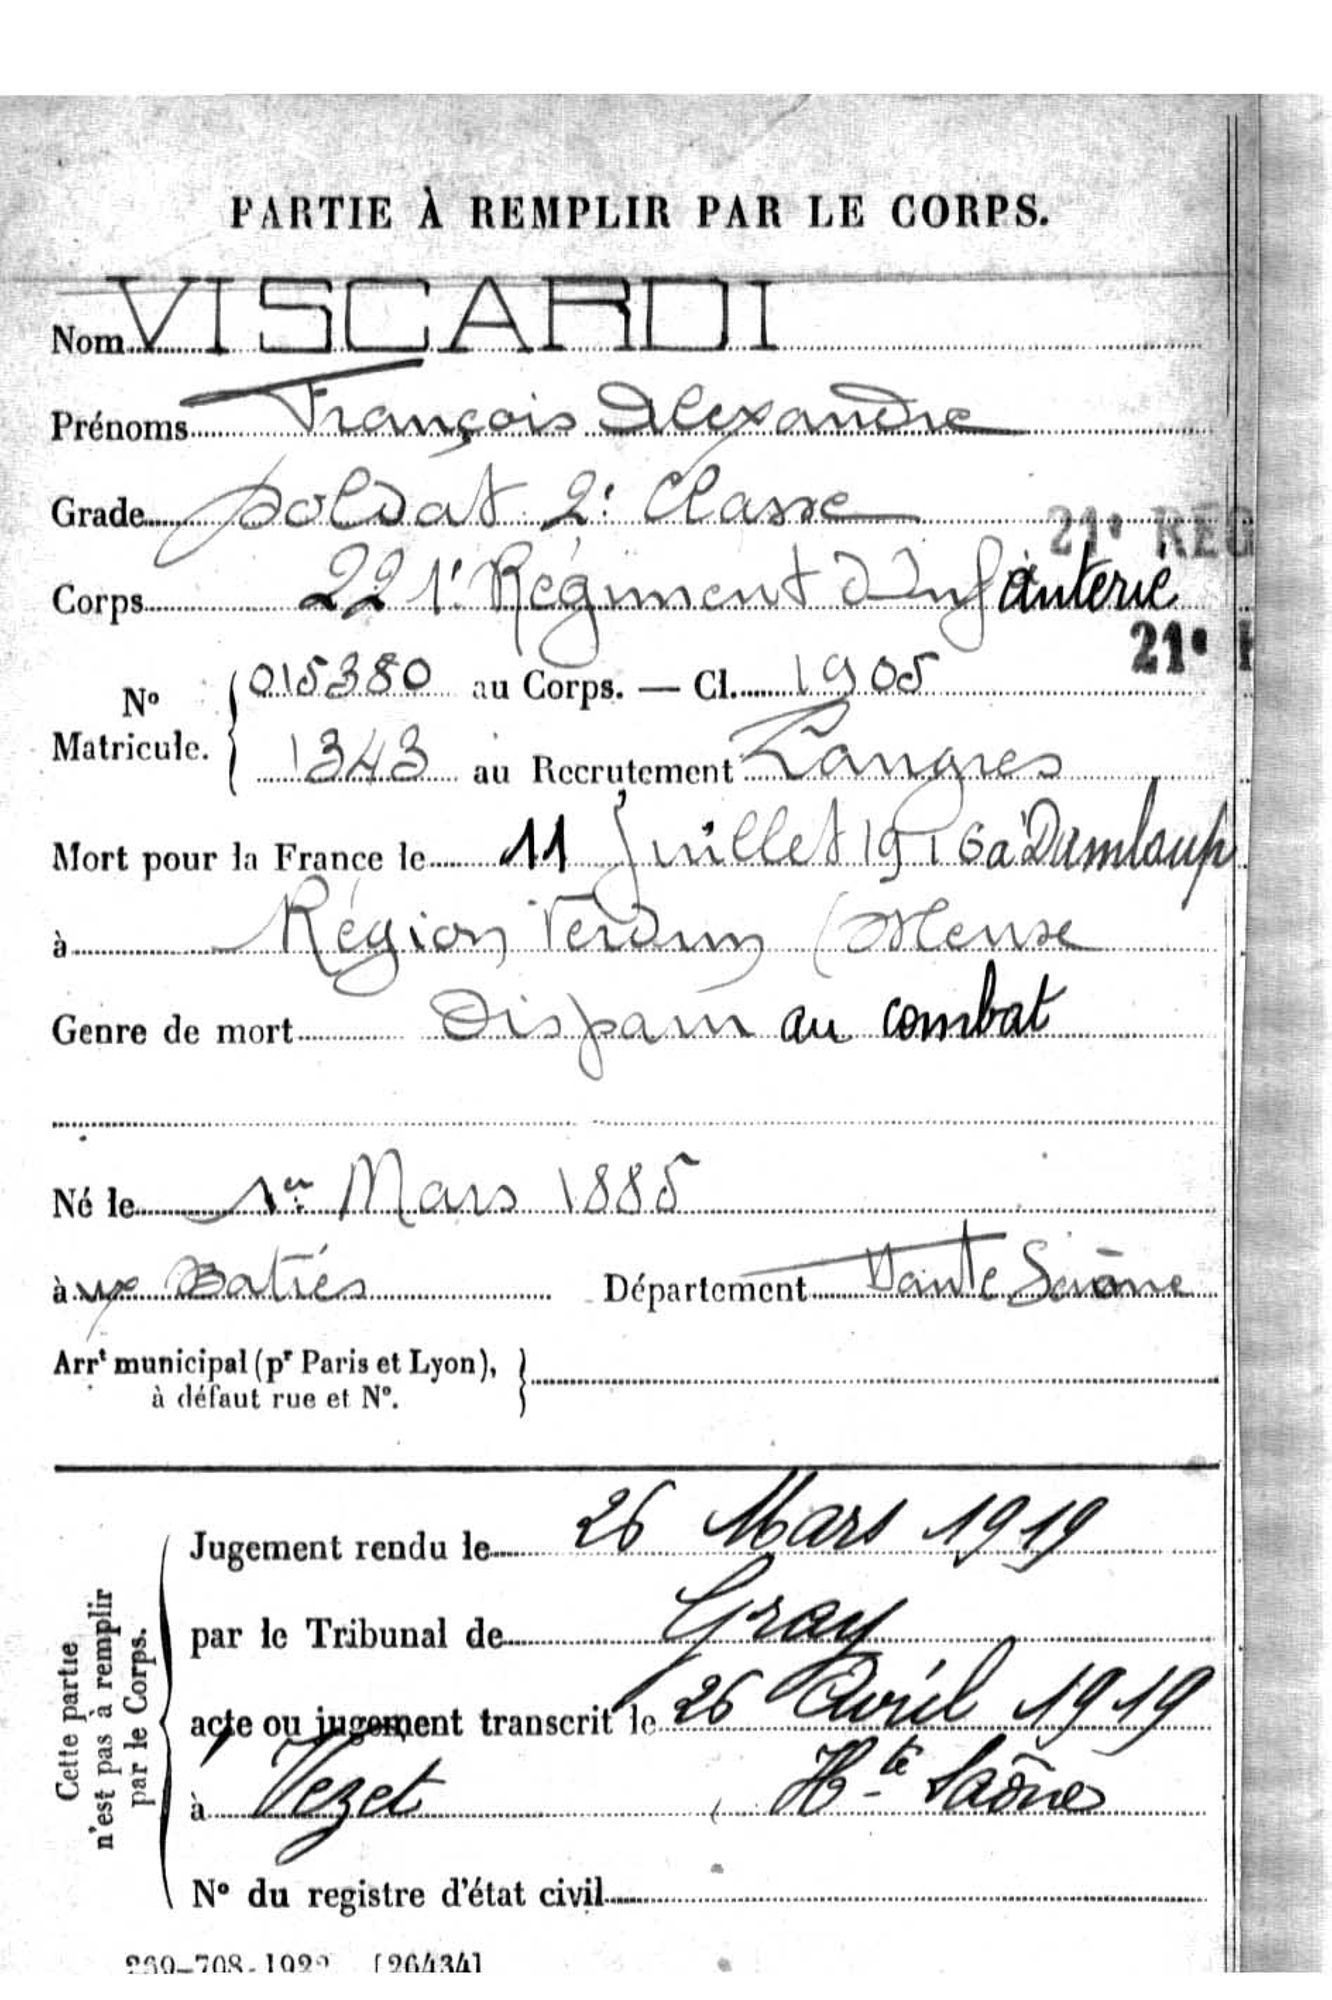 PARTIE À REMPLIR PAR LE CORPS.
Nom VISCARDI
Prénoms François Alexandre
Grade Soldat 2e Classe
21e REG
Corps 221e Régiment d'Infanterie
21e
No Matricule. { 015380 au Corps. — Cl. 1905
1343 au Recrutement Langres
Mort pour la France le 11 Juillet 1916 à Damloup
à Région Verdun (Meuse
Genre de mort Disparu au combat
Né le 1er Mars 1885
à ux Batiés Département Haute Saône
Arrt municipal (pr Paris et Lyon), }
à défaut rue et No.
Cette partie n'est pas à remplir par le Corps.
Jugement rendu le 26 Mars 1919
par le Tribunal de Gray
acte ou jugement transcrit le 26 Avril 1919
à Vezet (Hte Saône
No du registre d'état civil
[26434]